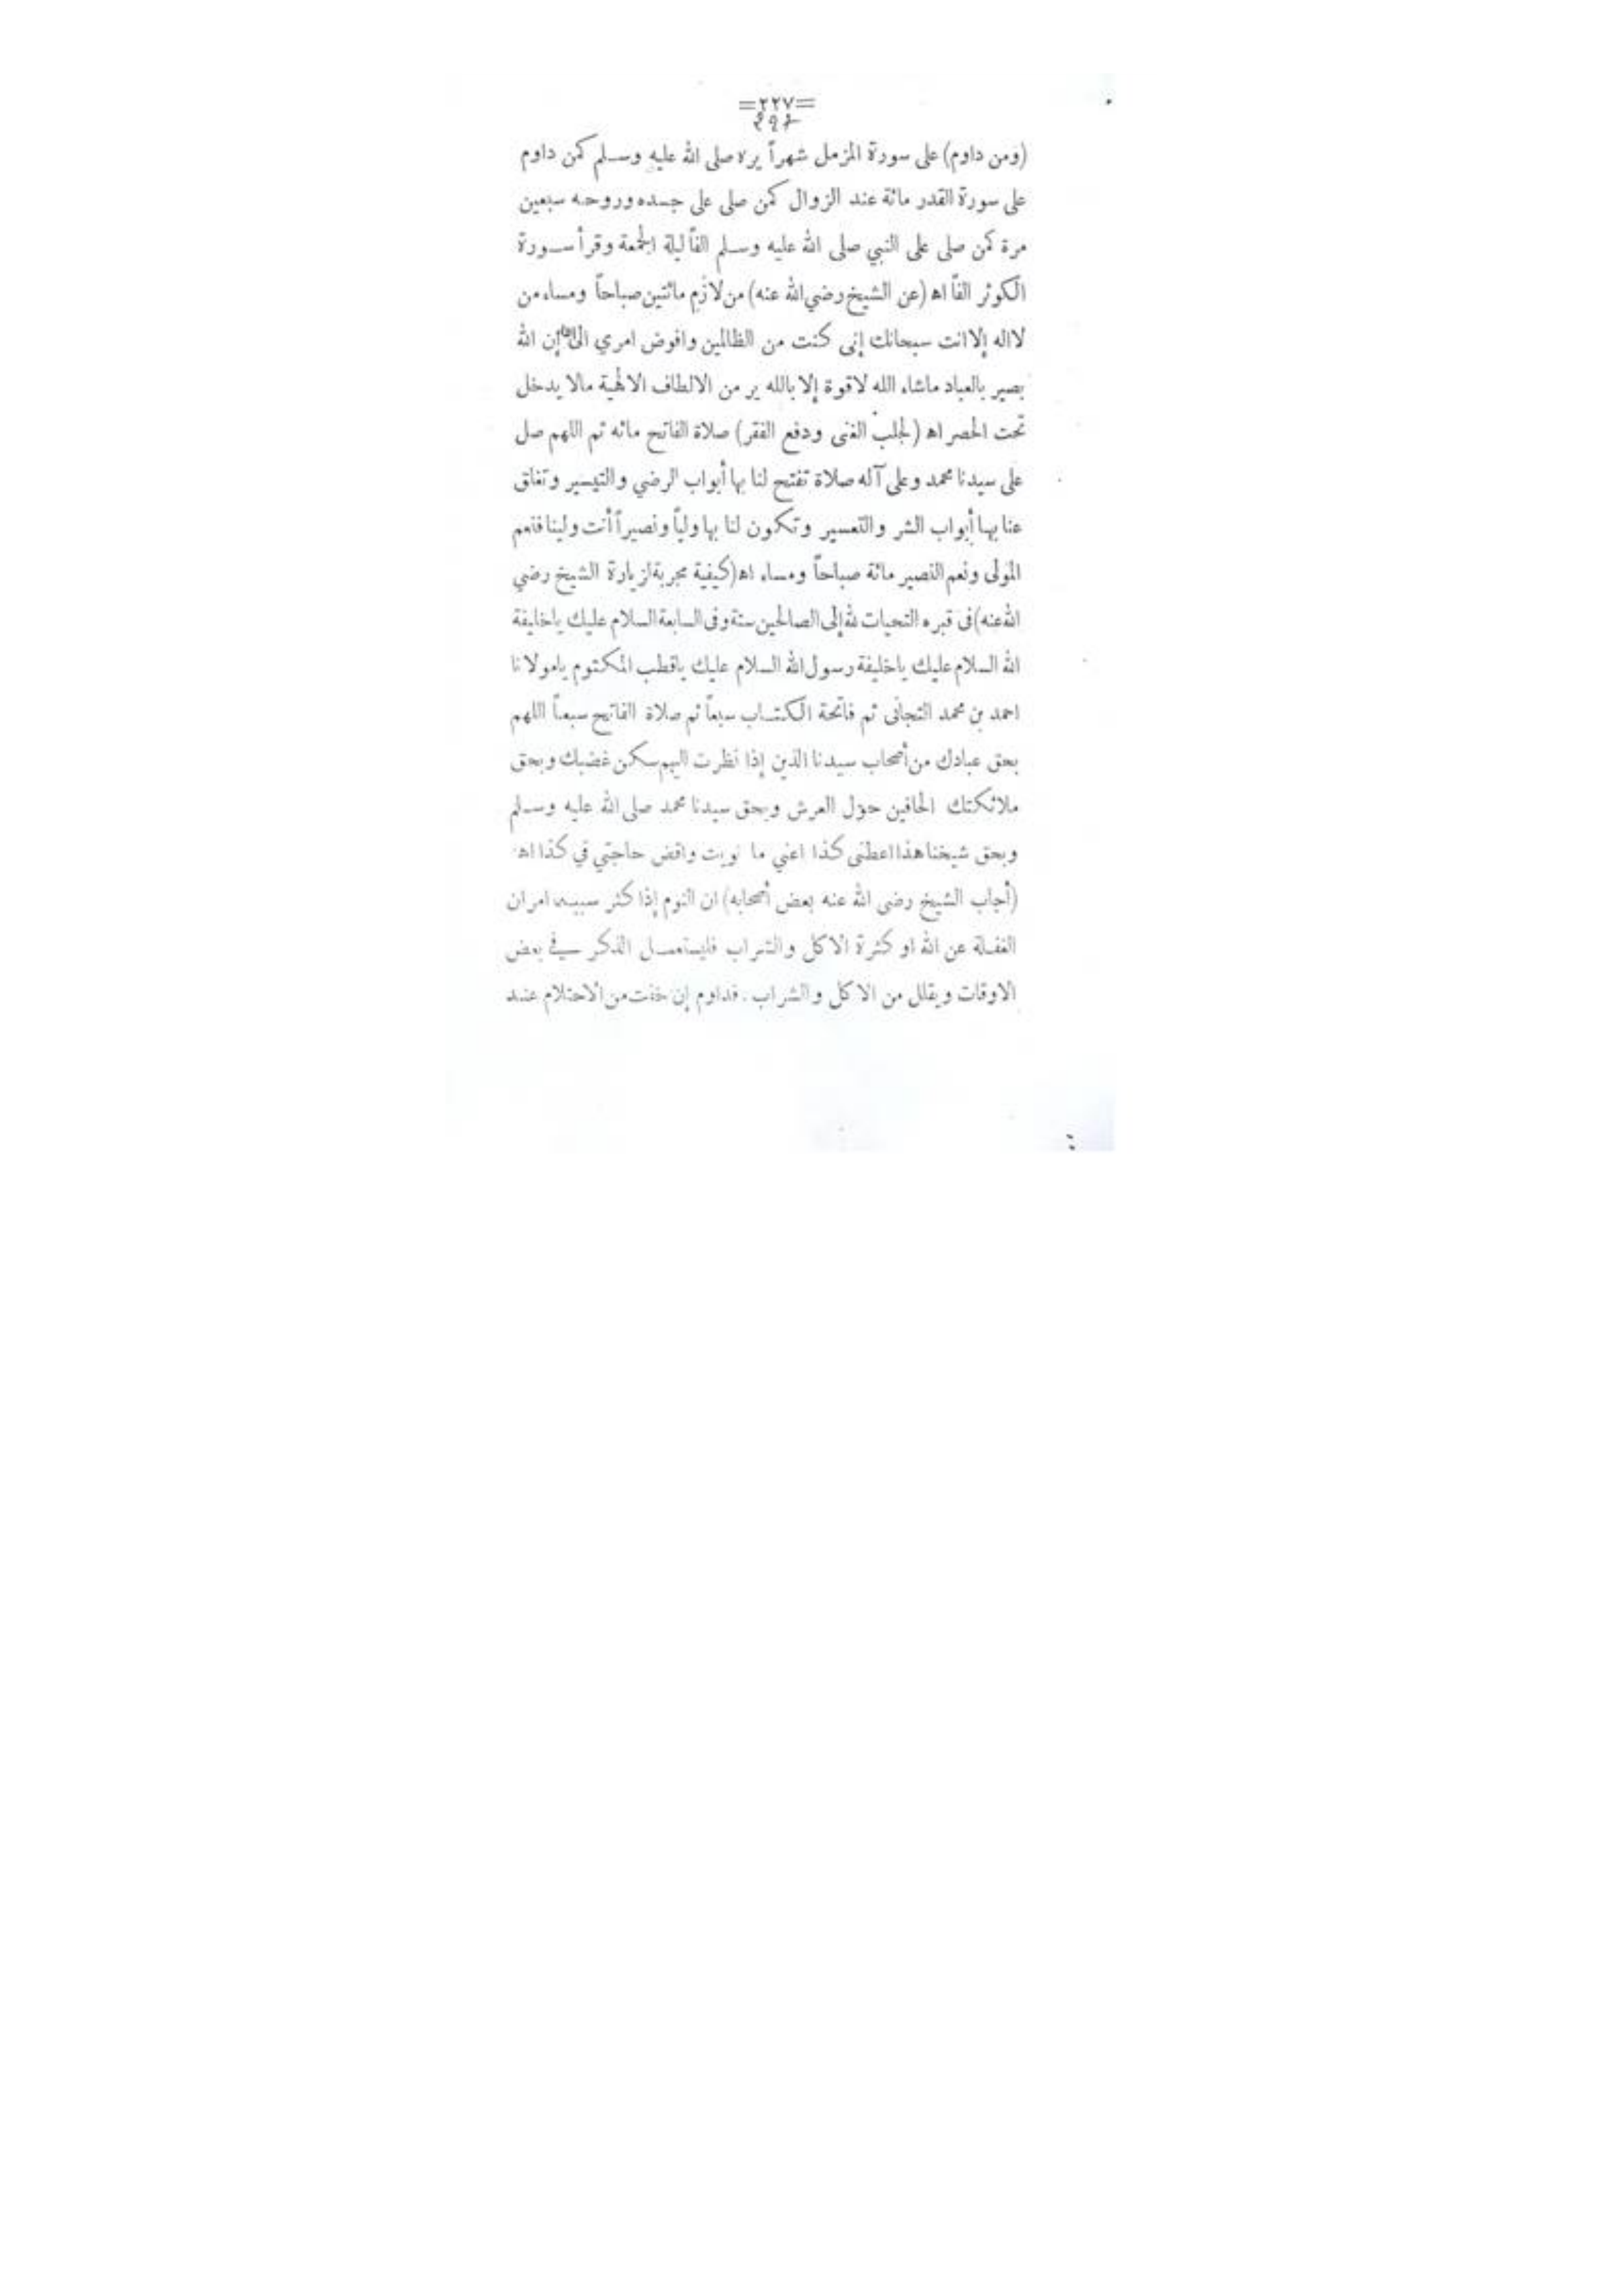 =٢٢٧=
(ومن داوم) على سورة المزمل شهراً يره صلى الله عليه وسلم كمن داوم
على سورة القدر مائة عند الزوال كمن صلى على جسده وروحه سبعين
مرة كمن صلى على النبي صلى الله عليه وسلم الفاً ليلة الجمعة وقرأ سورة
الكوثر الفاً اه (عن الشيخ رضي الله عنه) من لازم مائتين صباحاً ومساء من
لااله إلا انت سبحانك إنى كنت من الظالمين وافوض امري الى الله إن الله
بصير بالعباد ماشاء الله لاقوة إلا بالله ير من الالطاف الالهية مالا يدخل
تحت الحصر اه (لجلب الغنى ودفع الفقر) صلاة الفاتح مائه ثم اللهم صل
على سيدنا محمد وعلى آله صلاة تفتح لنا بها أبواب الرضي والتيسير وتغلق
عنا بها أبواب الشر والتعسير وتكون لنا بها ولياً ونصيراً أنت ولينا فنعم
المولى ونعم النصير مائة صباحاً ومساء اه (كيفية مجربة لزيارة الشيخ رضي
الله عنه) فى قبره التحيات لله إلى الصالحين ستة وفى السابعة السلام عليك ياخليفة
الله السلام عليك ياخليفة رسول الله السلام عليك ياقطب المكتوم يامولانا
احمد بن محمد التجانى ثم فاتحة الكتاب سبعاً ثم صلاة الفاتح سبعاً اللهم
بحق عبادك من أصحاب سيدنا الذين إذا نظرت اليهم سكن غضبك وبحق
ملائكتك الحافين حول العرش وبحق سيدنا محمد صلى الله عليه وسلم
وبحق شيخنا هذا اعطنى كذا اعني ما نويت واقض حاجتي في كذا اه
(أجاب الشيخ رضي الله عنه بعض أصحابه) ان النوم إذا كثر سببه امران
الغفلة عن الله او كثرة الاكل والشراب فليستعمل الذكر في بعض
الاوقات ويقلل من الاكل والشراب. فداوم إن خفت من الاحتلام عند